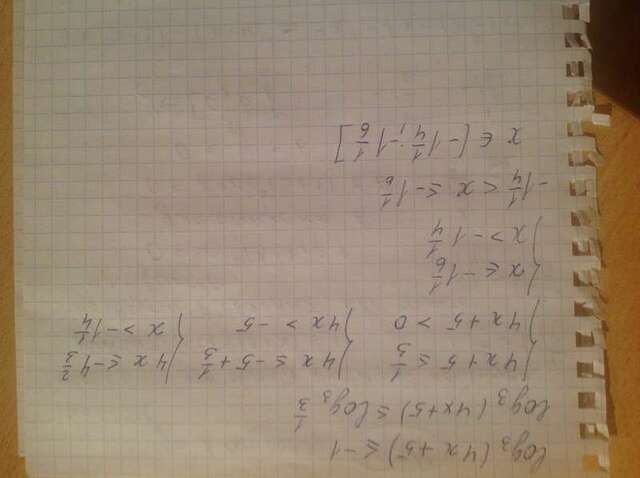 log₃(4x+5) ≤ -1
log₃(4x+5) ≤ log₃ 1/3
{ 4x+5 ≤ 1/3 { 4x ≤ -5+1/3 { 4x ≤ -4 2/3
{ 4x+5 > 0 { 4x > -5 { x > -1 1/4
{ x ≤ -1 1/6
{ x > -1 1/4
-1 1/4 < x ≤ -1 1/6
x ∈ [-1 1/4; -1 1/6]